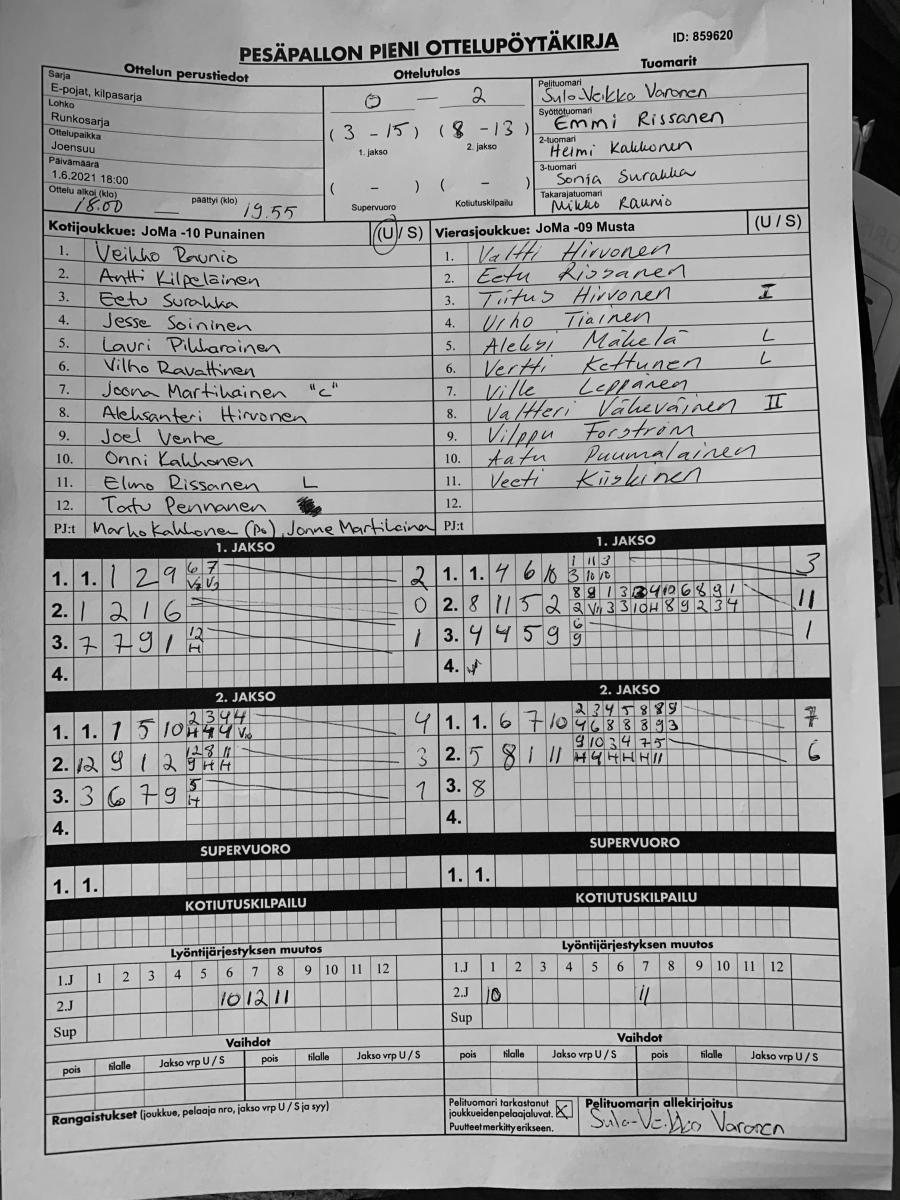 PESÄPALLON PIENI OTTELUPÖYTÄKIRJA
ID: 859620
Ottelun perustiedot
Ottelutulos
Tuomarit
Sarja
E-pojat, kilpasarja
Lohko
Runkosarja
Ottelupaikka
Joensuu
Päivämäärä
1.6.2021 18:00
Ottelu alkoi (klo) päättyi (klo)
18.00 — 19.55
0 — 2
(3 - 15) (8 - 13)
1. jakso 2. jakso
( - ) ( - )
Supervuoro Kotiutuskilpailu
Pelituomari
Sulo-Veikko Varonen
Syöttötuomari
Emmi Rissanen
2-tuomari
Helmi Kakkonen
3-tuomari
Sonja Surakka
Takarajatuomari
Mikko Raunio
Kotijoukkue: JoMa -10 Punainen (U / S)
1. Veikko Raunio
2. Antti Kilpeläinen
3. Eetu Surakka
4. Jesse Soininen
5. Lauri Pikkarainen
6. Vilho Ravattinen
7. Joona Martikainen "C"
8. Aleksanteri Hirvonen
9. Joel Venhe
10. Onni Kakkonen
11. Elmo Rissanen L
12. Tatu Pennanen
PJ:t Marko Kakkonen (Po), Jonne Martikaina
Vierasjoukkue: JoMa -09 Musta (U / S)
1. Valtti Hirvonen
2. Eetu Rissanen
3. Tiitus Hirvonen I
4. Urho Tiainen
5. Aleksi Mäkelä L
6. Vertti Kettunen L
7. Ville Leppänen
8. Valtteri Väheväinen II
9. Vilppu Forström
10. Aatu Puumalainen
11. Veeti Kiiskinen
12.
PJ:t
1. JAKSO
1. 1. 1 2 9 6 7 2
V2 V3
2. 1 2 1 6 0
3. 7 7 9 1 12 1
H
4.
1. JAKSO
1. 1. 4 6 10 1 11 3 3
3 10 10
2. 8 11 5 2 11
3. 4 4 5 9 6 1
9
4.
2. JAKSO
1. 1. 1 5 10 2 3 4 4 4
2. 12 9 1 2 12 8 11 3
9 H H
3. 3 6 7 9 5 1
H
4.
2. JAKSO
1. 1. 6 7 10 2 3 4 5 8 8 9 7
4 6 8 8 8 9 3
2. 5 8 1 11 9 10 3 4 7 5 6
H 4 H H H 11
3. 8
4.
SUPERVUORO
1. 1.
SUPERVUORO
1. 1.
KOTIUTUSKILPAILU
KOTIUTUSKILPAILU
Lyöntijärjestyksen muutos
1.J 1 2 3 4 5 6 7 8 9 10 11 12
2.J 10 12 11
Sup
Lyöntijärjestyksen muutos
1.J 1 2 3 4 5 6 7 8 9 10 11 12
2.J 10 11
Sup
Vaihdot
pois tilalle Jakso vrp U / S pois tilalle Jakso vrp U / S
Vaihdot
pois tilalle Jakso vrp U / S pois tilalle Jakso vrp U / S
Rangaistukset (joukkue, pelaaja nro, jakso vrp U / S ja syy)
Pelituomari tarkastanut
joukkueidenpelaajaluvat. X
Puutteet merkitty erikseen.
Pelituomarin allekirjoitus
Sulo-Veikko Varonen